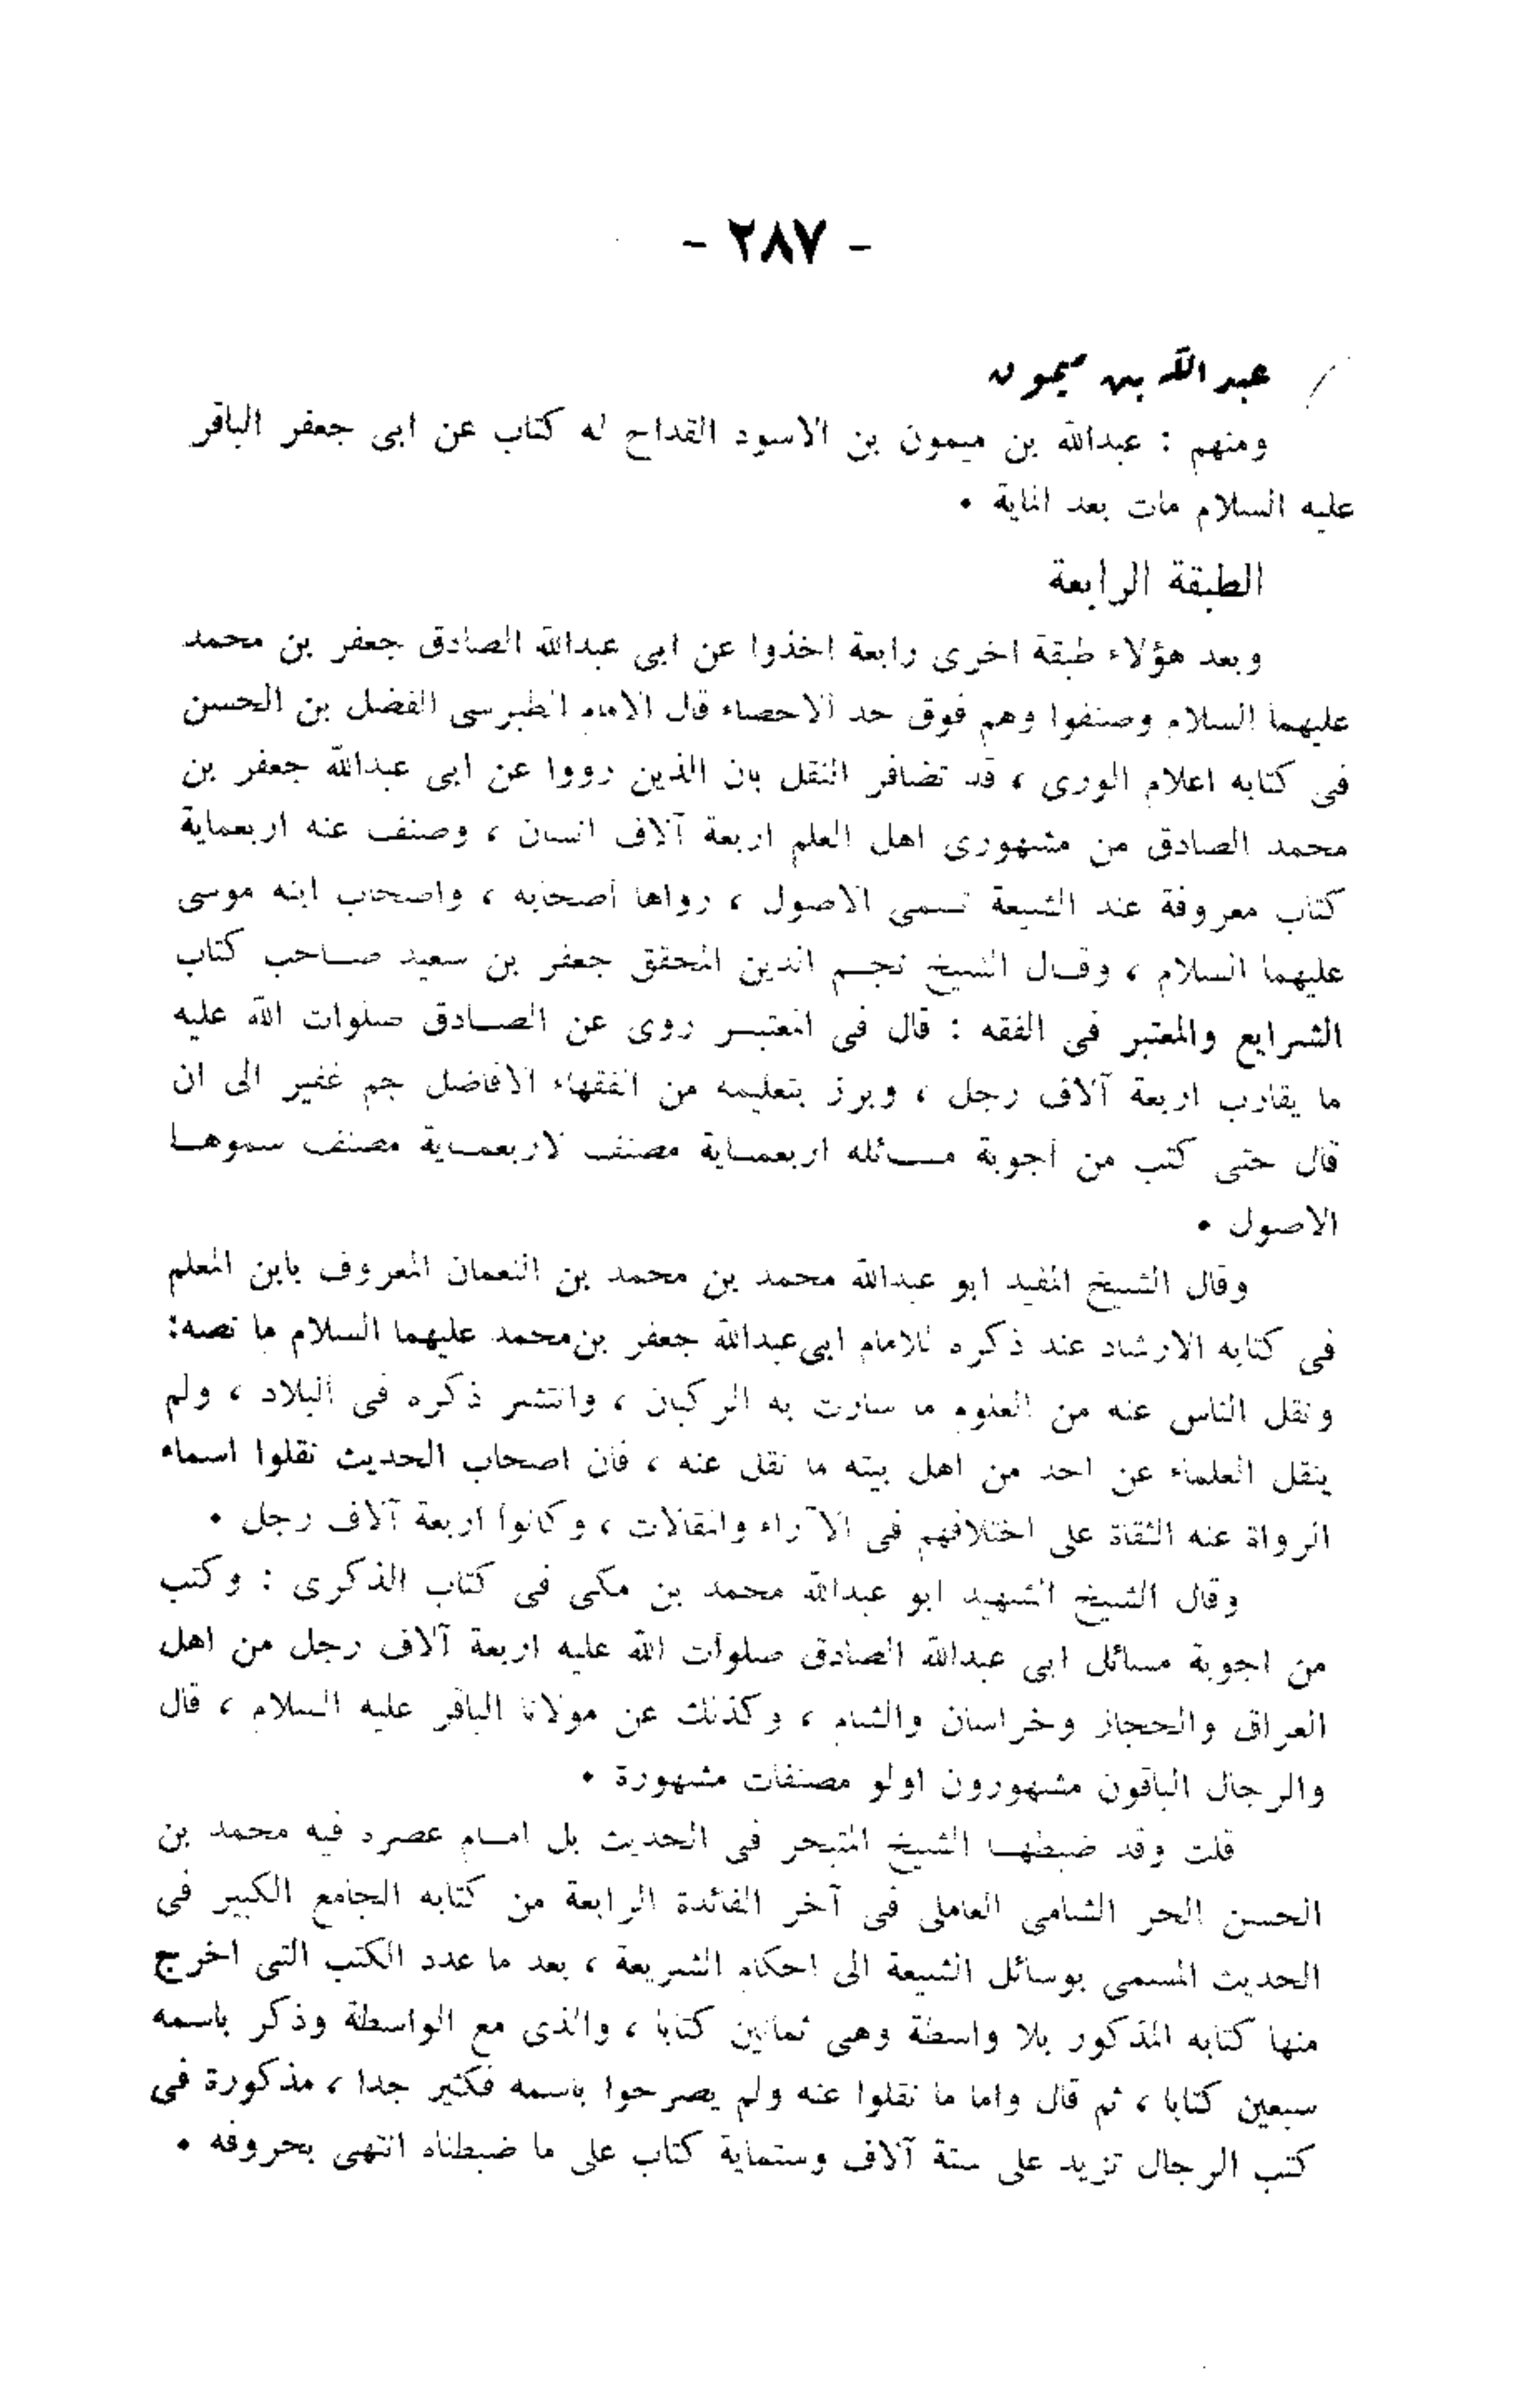 - ٢٨٧ -
عبدالله بن ميمون
ومنهم : عبدالله بن ميمون بن الاسود القداح له كتاب عن ابى جعفر الباقر
عليه السلام مات بعد الماية •
الطبقة الرابعة
وبعد هؤلاء طبقة اخرى رابعة اخذوا عن ابى عبدالله الصادق جعفر بن محمد
عليهما السلام وصنفوا وهم فوق حد الاحصاء قال الامام الطبرسى الفضل بن الحسن
فى كتابه اعلام الورى ، قد تضافر النقل بان الذين رووا عن ابى عبدالله جعفر بن
محمد الصادق من مشهورى اهل العلم اربعة آلاف انسان ، وصنف عنه اربعماية
كتاب معروفة عند الشيعة تسمى الاصول ، رواها أصحابه ، واصحاب ابنه موسى
عليهما السلام ، وقال الشيخ نجم الدين المحقق جعفر بن سعيد صاحب كتاب
الشرايع والمعتبر فى الفقه : قال فى المعتبر روى عن الصادق صلوات الله عليه
ما يقارب اربعة آلاف رجل ، وبرز بتعليمه من الفقهاء الافاضل جم غفير الى ان
قال حتى كتب من أجوبة مسائله اربعماية مصنف لاربعماية مصنف سموها
الاصول •
وقال الشيخ المفيد ابو عبدالله محمد بن محمد بن النعمان المعروف بابن المعلم
فى كتابه الارشاد عند ذكره للامام ابى عبدالله جعفر بن محمد عليهما السلام ما نصه:
ونقل الناس عنه من العلوم ما سارت به الركبان ، وانتشر ذكره فى البلاد ، ولم
ينقل العلماء عن احد من اهل بيته ما نقل عنه ، فان اصحاب الحديث نقلوا اسماء
الرواة عنه الثقاة على اختلافهم فى الآراء والمقالات ، وكانوا اربعة آلاف رجل •
وقال الشيخ الشهيد ابو عبدالله محمد بن مكى فى كتاب الذكرى : وكتب
من اجوبة مسائل ابى عبدالله الصادق صلوات الله عليه اربعة آلاف رجل من اهل
العراق والحجاز وخراسان والشام ، وكذلك عن مولانا الباقر عليه السلام ، قال
والرجال الباقون مشهورون اولو مصنفات مشهورة •
قلت وقد ضبطها الشيخ المتبحر فى الحديث بل امام عصره فيه محمد بن
الحسن الحر الشامى العاملى فى آخر الفائدة الرابعة من كتابه الجامع الكبير فى
الحديث المسمى بوسائل الشيعة الى احكام الشريعة ، بعد ما عدد الكتب التى اخرج
منها كتابه المذكور بلا واسطة وهى ثمانين كتابا ، والذى مع الواسطة وذكر باسمه
سبعين كتابا ، ثم قال واما ما نقلوا عنه ولم يصرحوا باسمه فكثير جدا ، مذكورة فى
كتب الرجال تزيد على ستة آلاف وستماية كتاب على ما ضبطناه انتهى بحروفه •